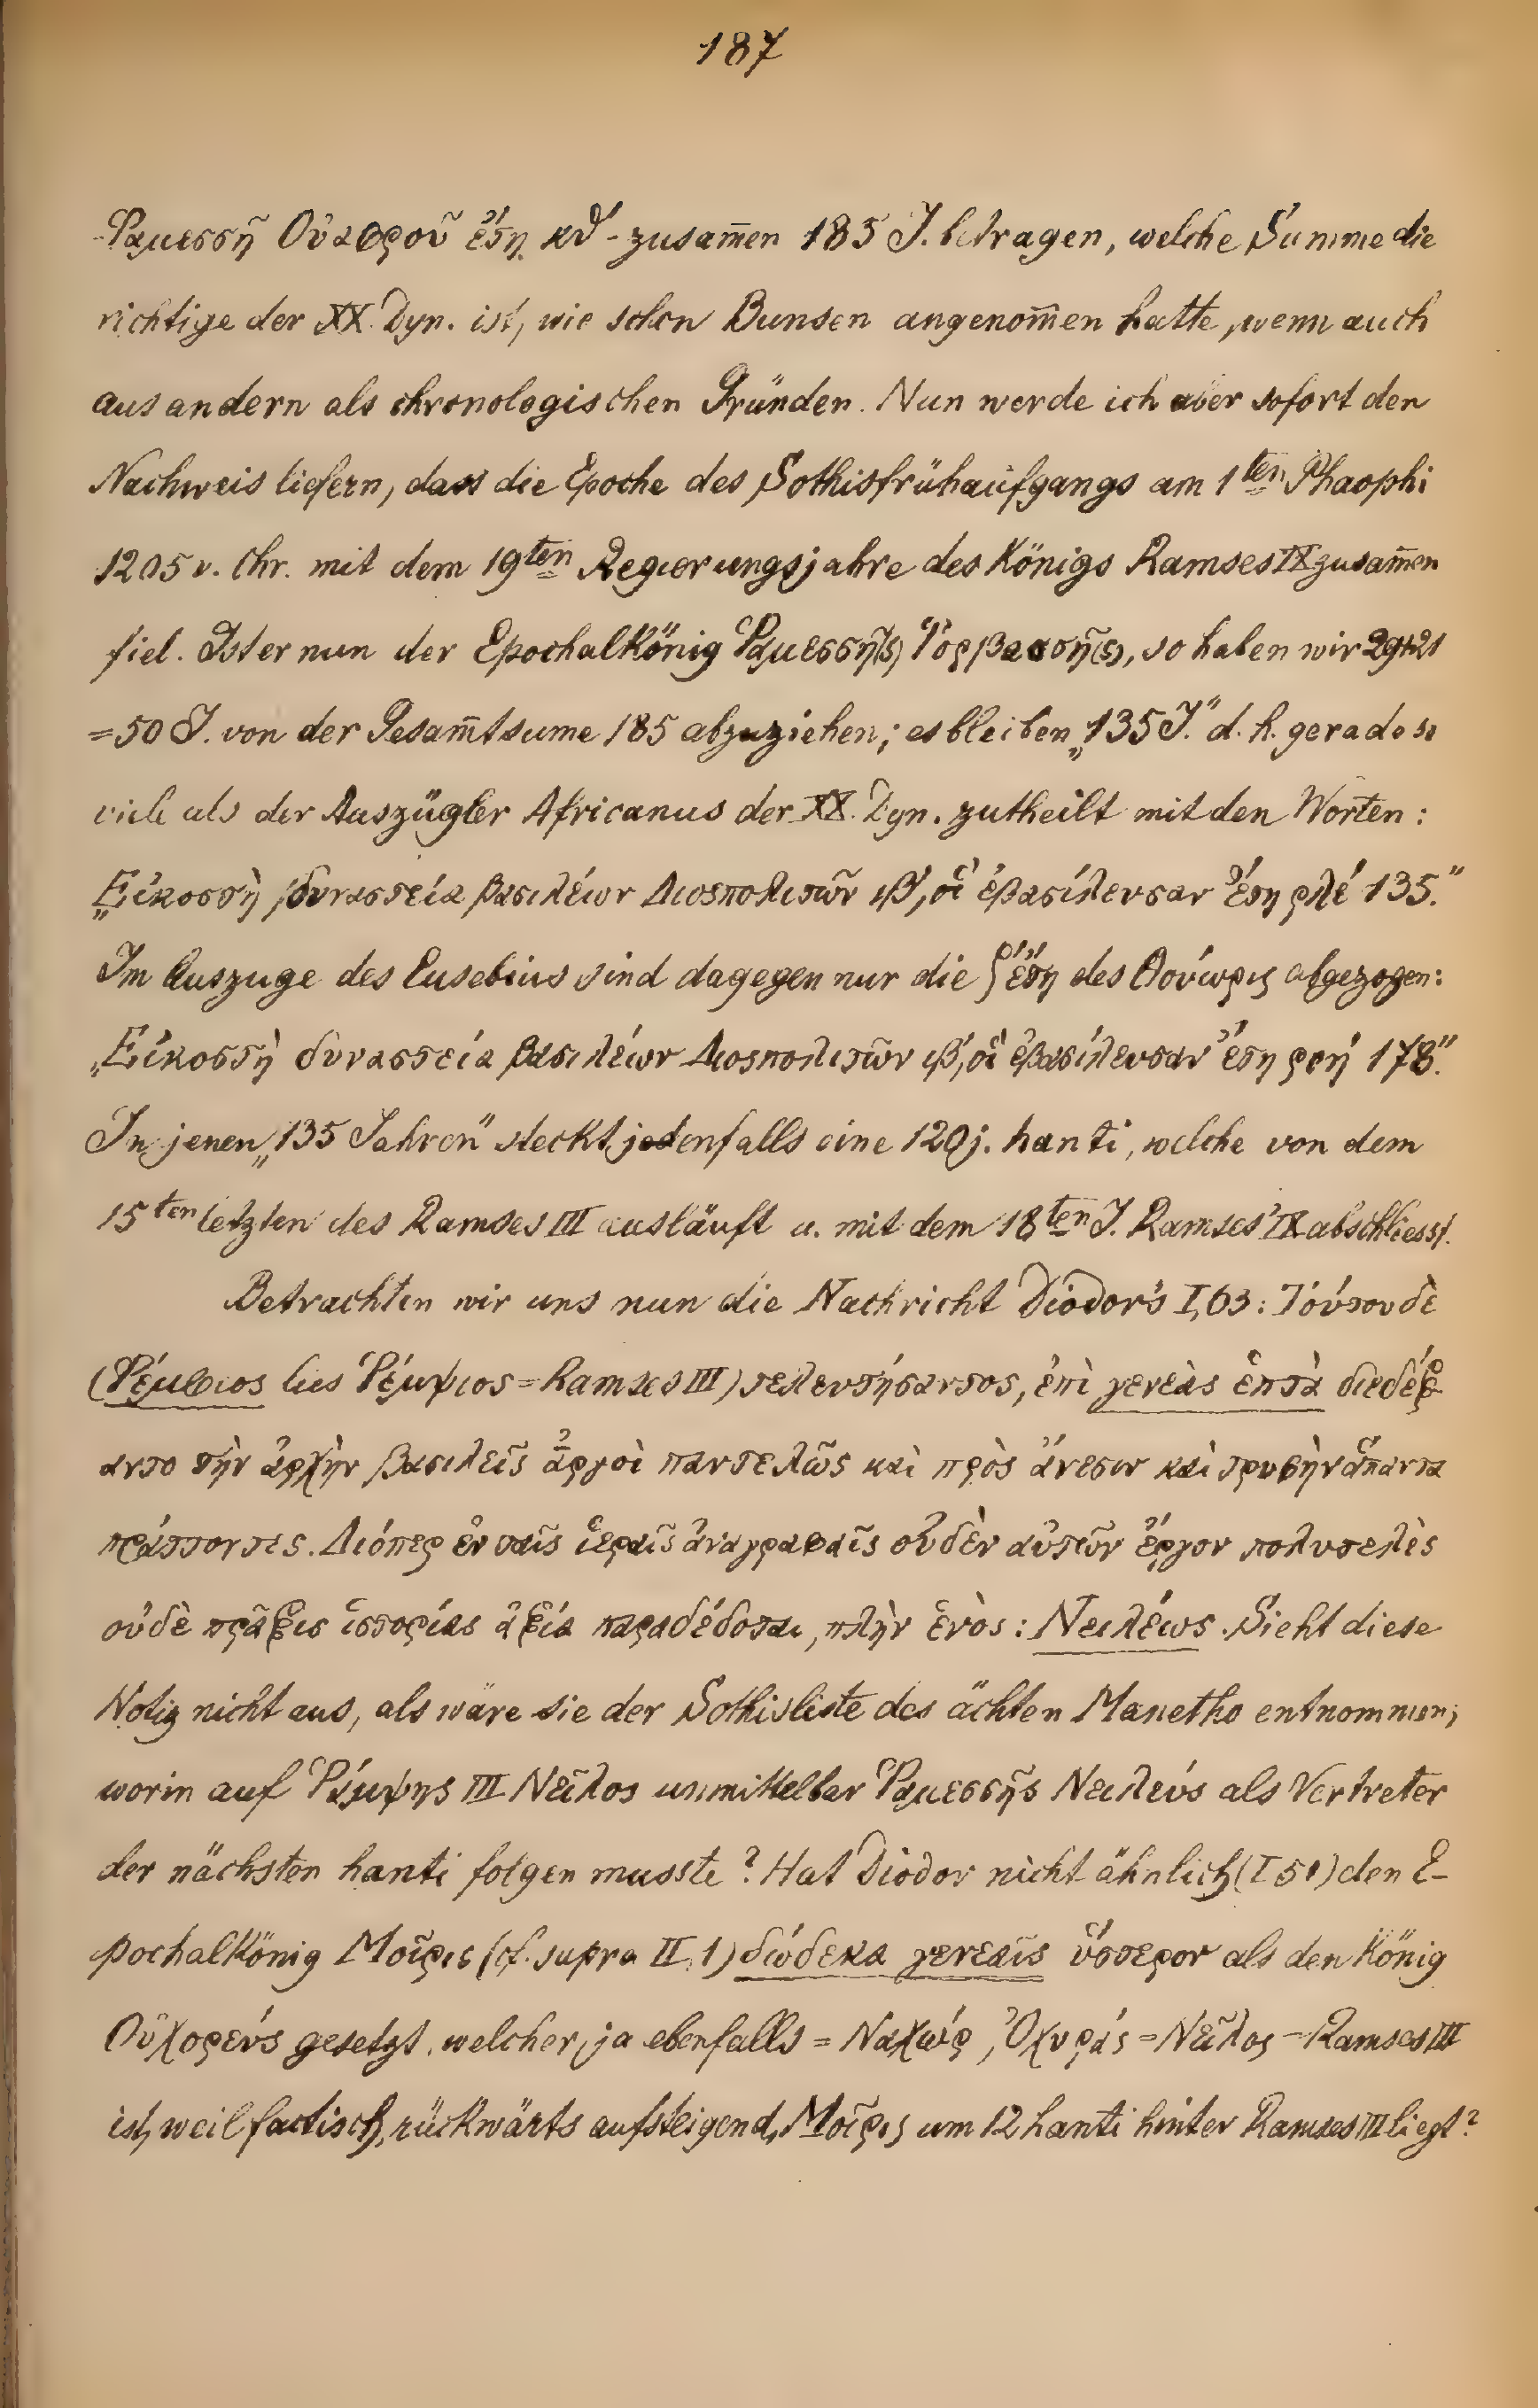 187
Ῥαμεσσῆ Οὐαφροῦ ἔτη κθ´ - zusam̄en 185 J. betragen, welche Summe die
richtige der XX. Dyn. ist, wie schon Bunsen angenom̄en hatte, wenn auch
aus andern als chronologischen Gründen. Nun werde ich aber sofort den
Nachweis liefern, dass die Epoche des Sothisfrühaufgangs am 1ten Phaophi
1205 v. Chr. mit dem 19ten Regierungsjahre des Königs Ramses IX zusam̄en
fiel. Ist er nun der Epochalkönig Ῥαμεσσῆ(ς) so haben wir 29+21
=50 J. von der Gesam̄tsume 185 abzuziehen; es bleiben „135 J." d. h. gerade so
viele als der Auszügler Africanus der XX. Dyn. zutheilt mit den Worten:
„Εἰκοστὴ δυναστεία βασιλέων Διοσπολιτῶν ιβ´, οἳ ἐβασίλευσαν ἔτη ρλέ 135."
Im Auszuge des Eusebius sind dagegen nur die ζ´ ἔτη des Θούωρις abgezogen:
„Εἰκοστὴ δυναστεία βασιλέων Διοσπολιτῶν ιβ´, οἳ ἐβασίλευσαν ἔτη ροή 178."
In jenen „135 Jahren" steckt jedenfalls eine 120j. hanti, welche von dem
15ten letzten des Ramses III ausläuft u. mit dem 18ten J. Ramses' IX abschliesst.
Betrachten wir uns nun die Nachricht Diodor's I, 63: Τούτου δὲ
(Ῥέμφιος lies Ῥέμψιος = Ramses III) τελευτήσαντος, ἐπὶ γενεὰς ἑπτὰ διεδέξ
αντο τὴν ἀρχὴν βασιλεῖς ἀργοὶ παντελῶς καὶ πρὸς ἄνεσιν καὶ τρυφὴν ἅπαντα
πράττοντες. Διόπερ ἐν ταῖς ἱεραῖς ἀναγραφαῖς οὐδὲν αὐτῶν ἔργον πολυτελὲς
οὐδὲ πρᾶξις ἱστορίας ἀξία παραδέδοται, πλὴν ἑνὸς: Νειλέως. Sieht diese
Notiz nicht aus, als wäre sie der Sothisliste des ächten Manetho entnommen,
worin auf Ῥάμψης III Νεῖλος unmittelbar Ῥαμεσσῆς Νειλεύς als Vertreter
der nächsten hanti folgen musste? Hat Diodor nicht ähnlich (I 51) den E-
pochalkönig Μοῖρις (cf. supra II, 1) δώδεκα γενεαῖς ὕστερον als den König
Οὐχορεύς gesetzt, welcher ja ebenfalls = Ναχώρ, Ὀχυράς = Νεῖλος = Ramses III
ist, weil factisch, rückwärts aufsteigend, Μοῖρις um 12 hanti hinter Ramses III liegt?